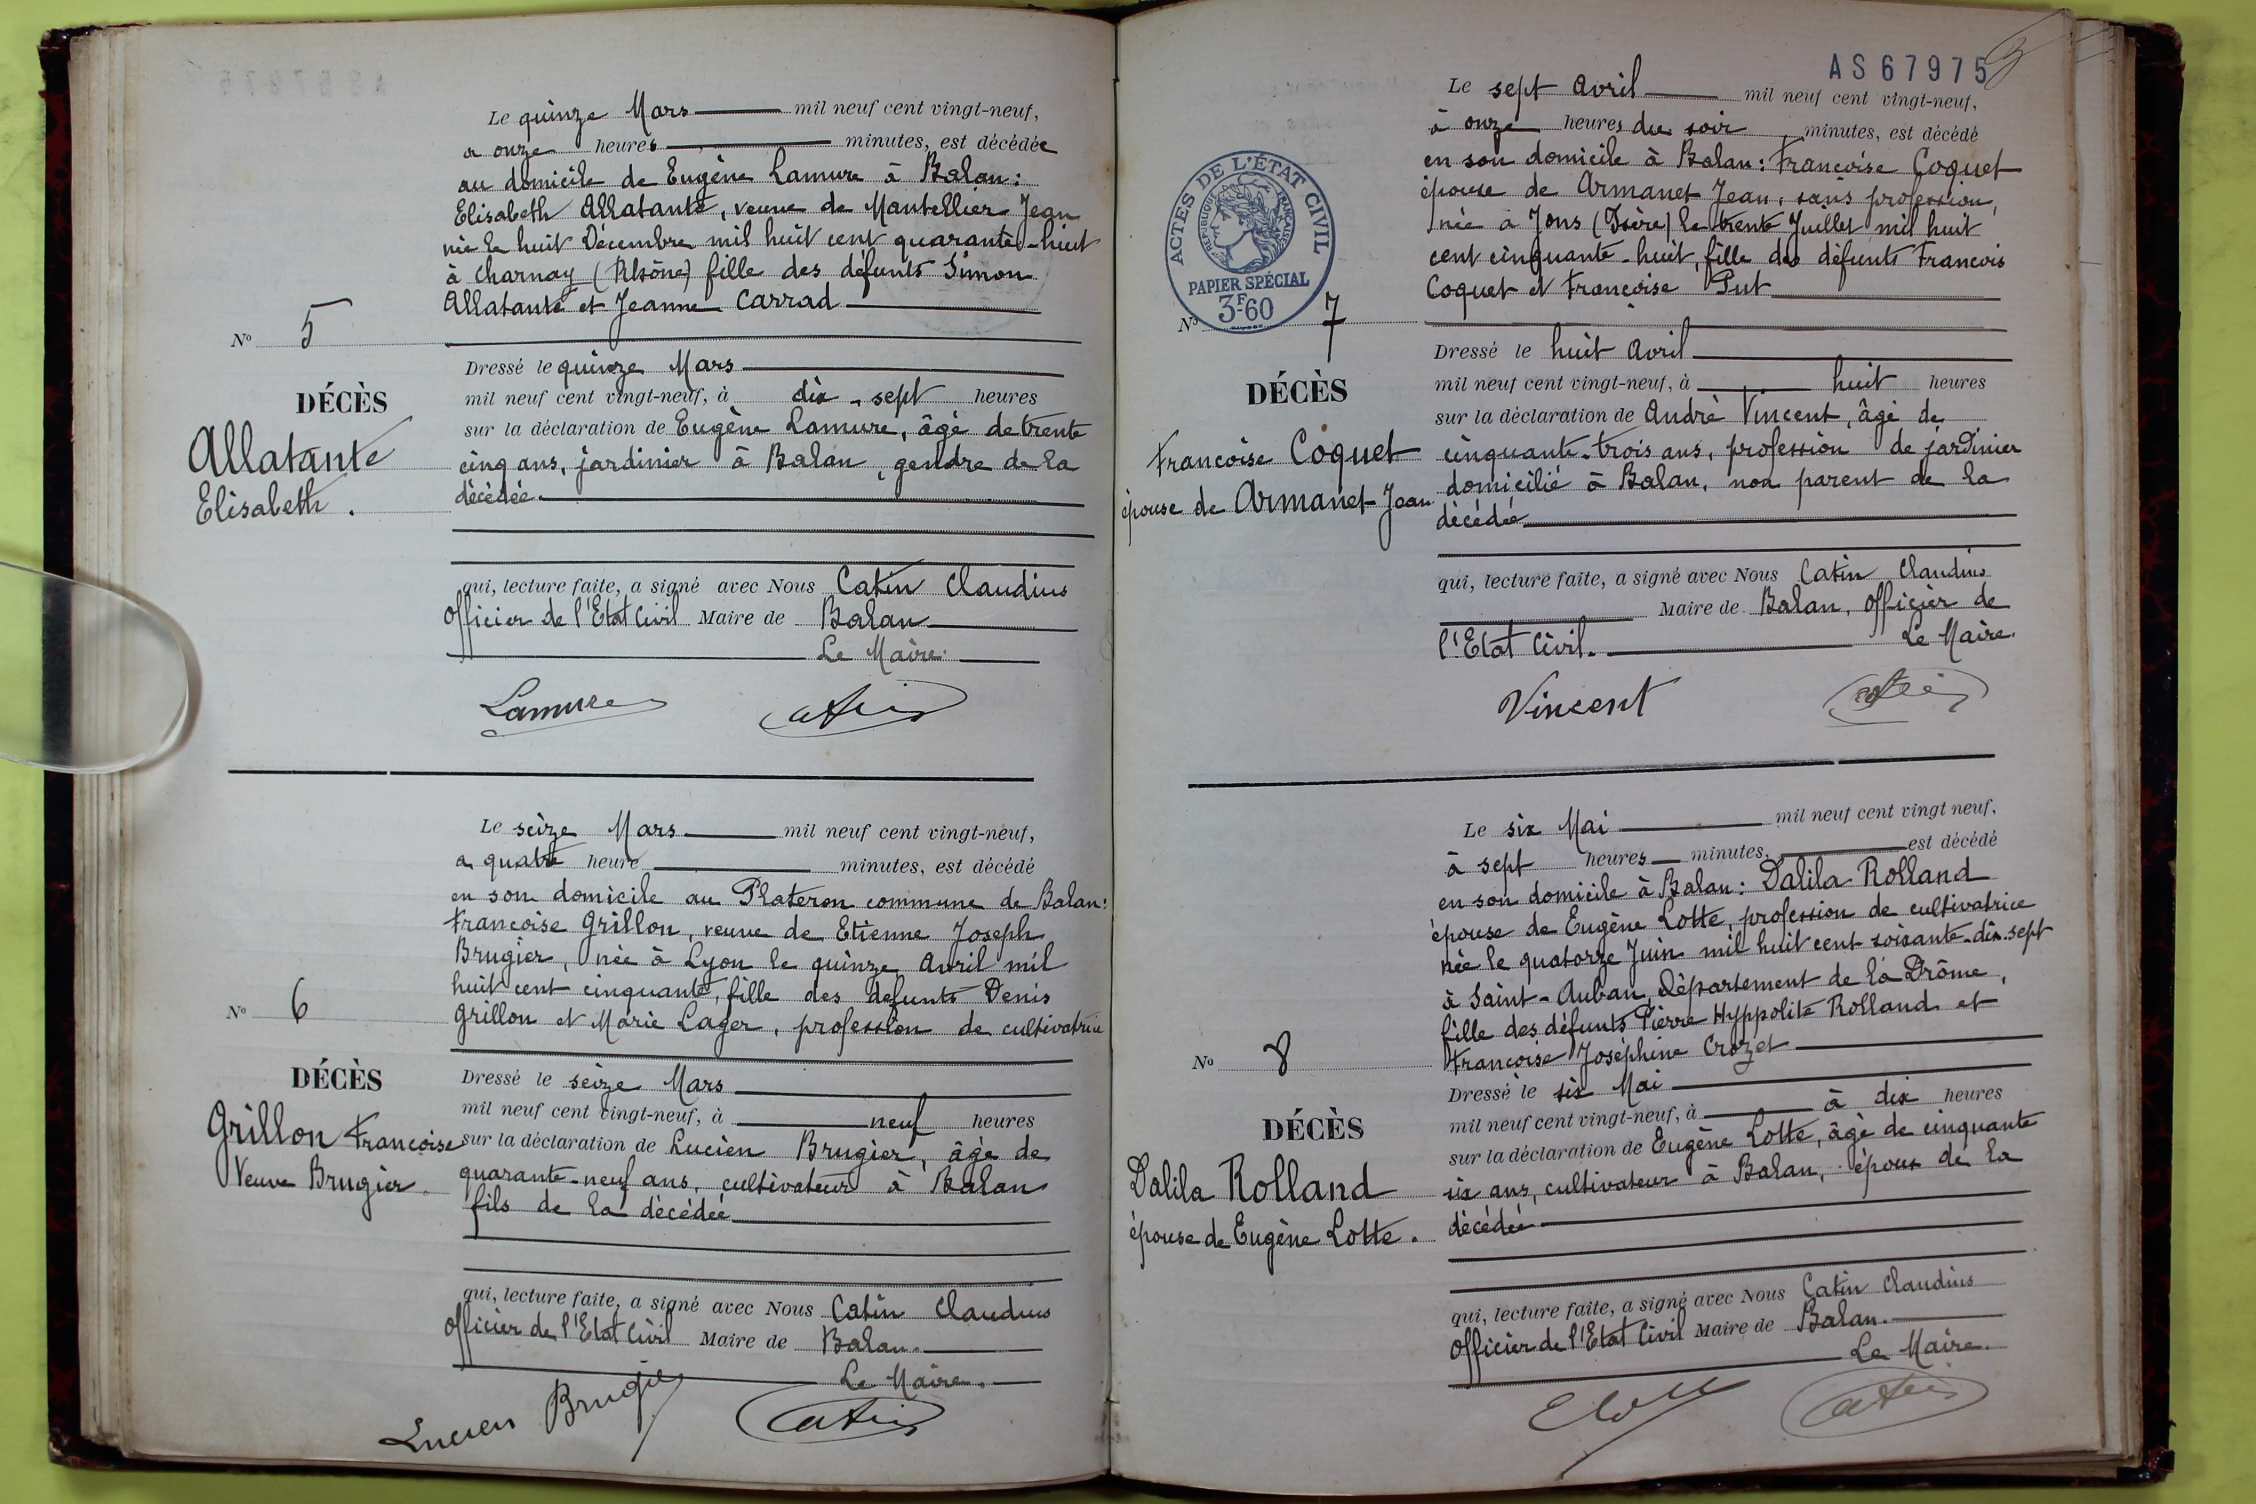 Le quinze Mars mil neuf cent vingt-neuf,
a onze heures minutes, est décédée
au domicile de Eugène Lamure à Balan :
Elisabeth Allatante, veuve de Mantellier Jean
née le huit Décembre mil huit cent quarante-huit
à Charnay (Rhône) fille des défunts Simon
Allatante et Jeanne Carrad
N° 5
Dressé le quinze Mars
mil neuf cent vingt-neuf, à dix-sept heures
DÉCÈS
sur la déclaration de Eugène Lamure, âgé de trente
Allatante
cinq ans, jardinier à Balan, gendre de la
Elisabeth.
décédée.
qui, lecture faite, a signé avec Nous Catin Claudius
Officier de l'Etat Civil Maire de Balan
Le Maire.
Lamure Catin
Le seize Mars mil neuf cent vingt-neuf,
a quatre heure minutes, est décédé
en son domicile au Plateron commune de Balan :
Francoise Grillon, veuve de Etienne Joseph
Brugier, née à Lyon le quinze Avril mil
huit cent cinquante, fille des défunts Denis
N° 6
Grillon et Marie Lager, profession de cultivatrice
DÉCÈS
Dressé le seize Mars
mil neuf cent vingt-neuf, à neuf heures
Grillon Francoise
sur la déclaration de Lucien Brugier, âgé de
Veuve Brugier.
quarante-neuf ans, cultivateur à Balan
fils de la décédée
qui, lecture faite, a signé avec Nous Catin Claudius
Officier de l'Etat Civil Maire de Balan.
Le Maire.
Lucien Brugier Catin
AS67975
Le sept Avril mil neuf cent vingt-neuf,
à onze heures du soir minutes, est décédé
en son domicile à Balan : Francoise Coquet
épouse de Armanet Jean, sans profession,
née à Jons (Isère) le trente Juillet mil huit
cent cinquante-huit, fille des défunts Francois
Coquet et Françoise Put
ACTES DE L'ÉTAT CIVIL
RÉPUBLIQUE FRANÇAISE
PAPIER SPÉCIAL
3F-60
N° 7
Dressé le huit Avril
mil neuf cent vingt-neuf, à huit heures
DÉCÈS
sur la déclaration de André Vincent, âgé de
Francoise Coquet
cinquante-trois ans, profession de jardinier
épouse de Armanet Jean
domicilié à Balan, non parent de la
décédée
qui, lecture faite, a signé avec Nous Catin Claudius
Maire de Balan, Officier de
l'Etat Civil. Le Maire.
Vincent Catin
Le six Mai mil neuf cent vingt neuf,
à sept heures minutes, est décédé
en son domicile à Balan : Dalila Rolland
épouse de Eugène Lotte, profession de cultivatrice
née le quatorze Juin mil huit cent soixante-dix-sept
à Saint-Auban, Département de la Drôme,
fille des défunts Pierre Hyppolite Rolland et
Francoise Joséphine Crozet
N° 8
Dressé le six Mai
mil neuf cent vingt-neuf, à à dix heures
DÉCÈS
sur la déclaration de Eugène Lotte, âgé de cinquante
Dalila Rolland
six ans, cultivateur à Balan, époux de la
épouse de Eugène Lotte.
décédée
qui, lecture faite, a signé avec Nous Catin Claudius
Officier de l'Etat Civil Maire de Balan.
Le Maire.
E Lotte Catin